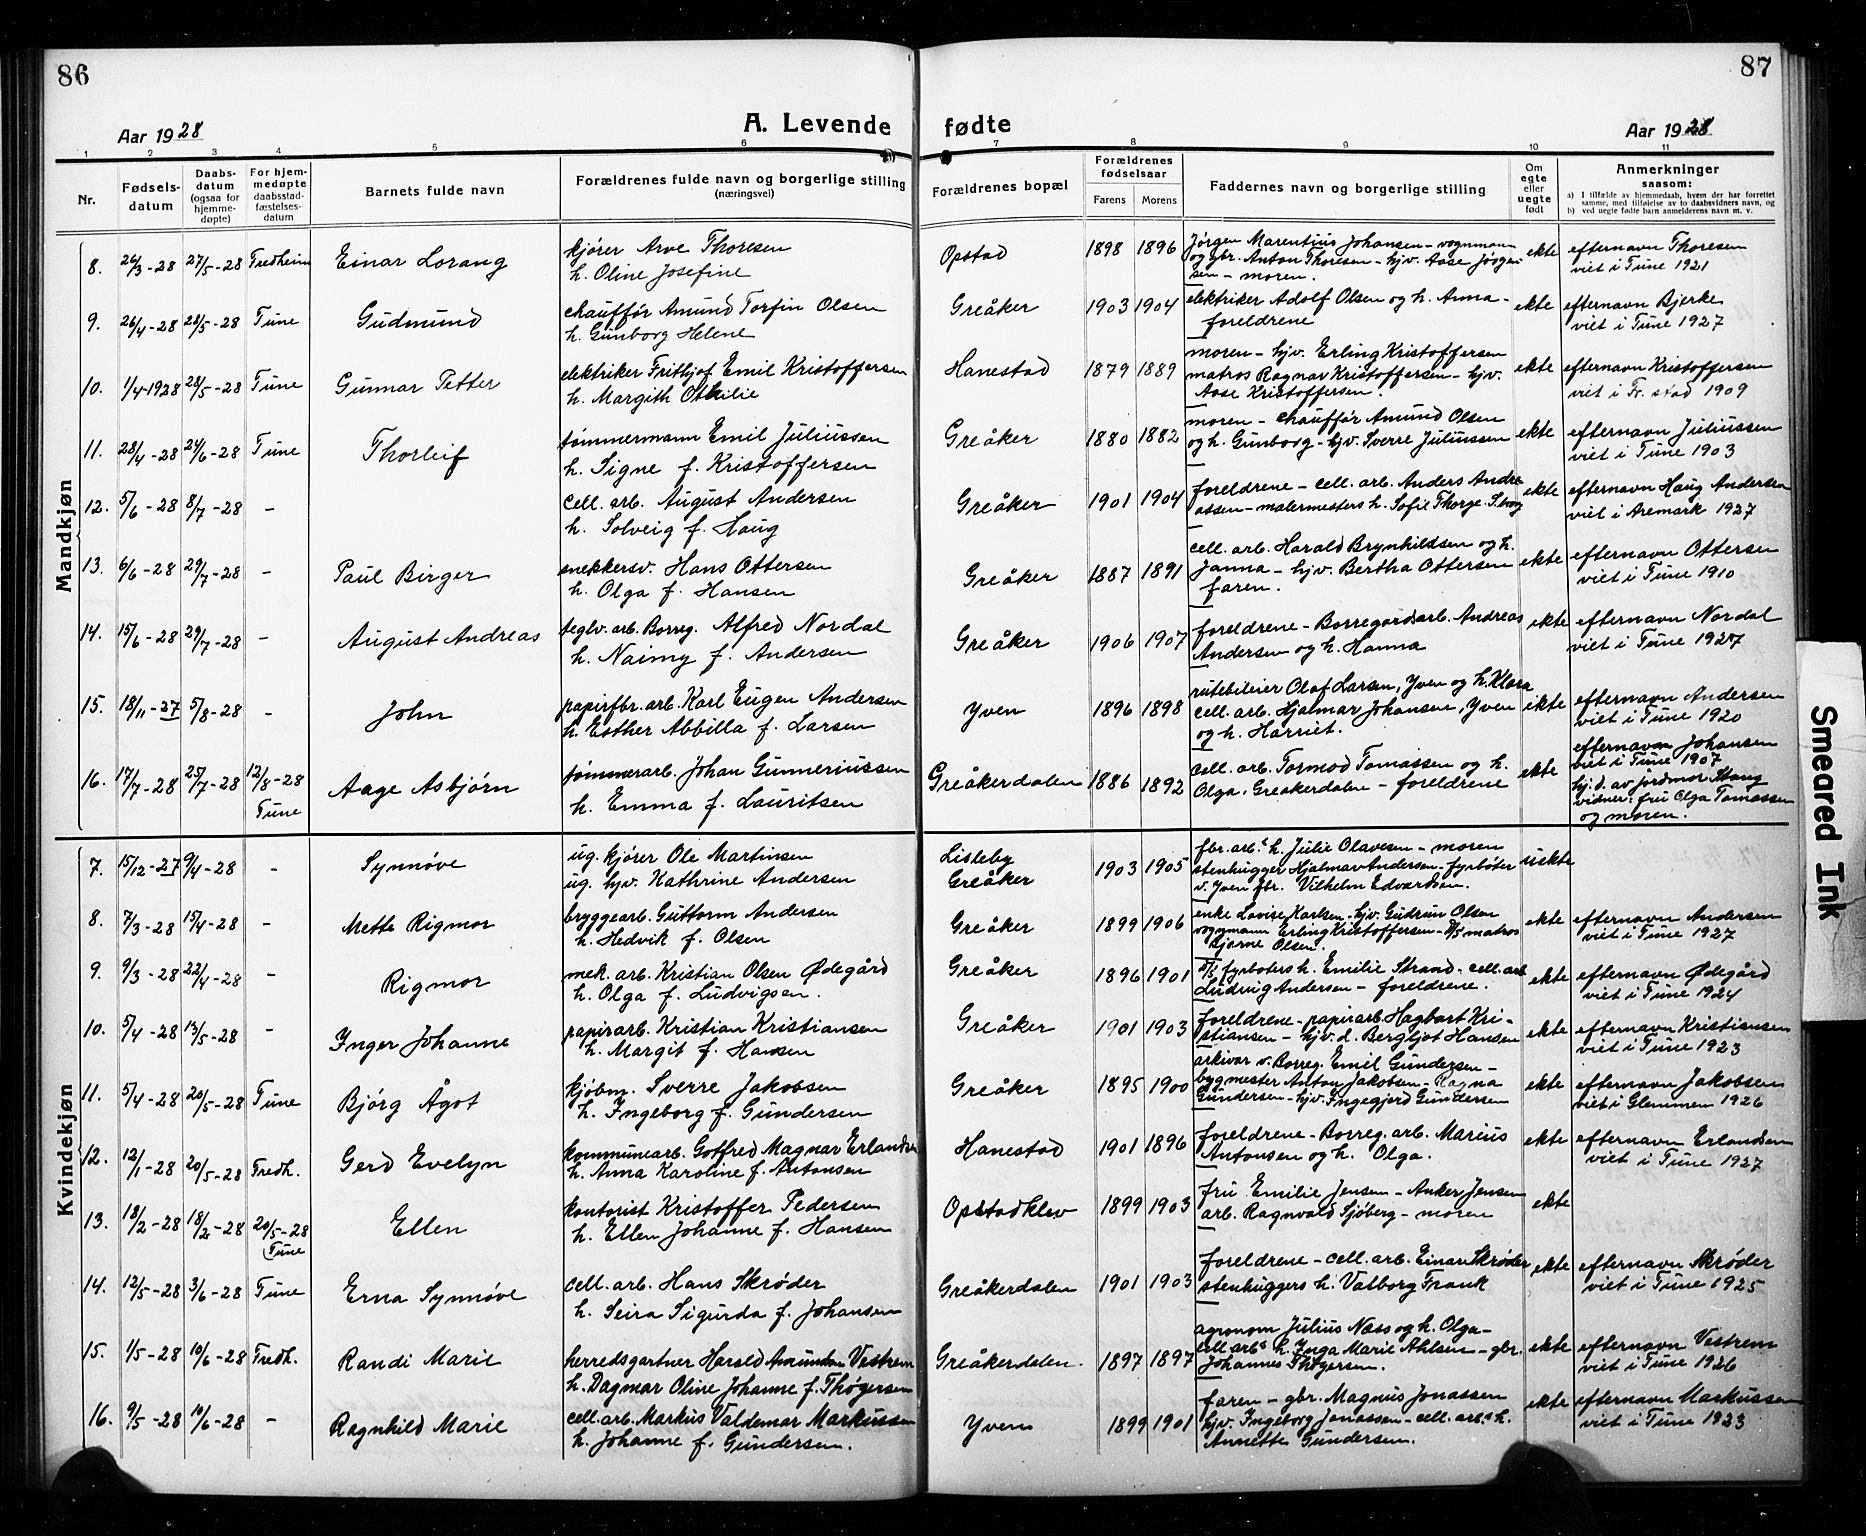 86
87
A. Levende fødte
Aar 1928
Aar 1928
1 2 3 4 5 6 7 8 9 10 11
Nr.
Fødselsdatum
Daabsdatum (ogsaa for hjemmedøpte)
For hjemmedøpte daabsstadfæstelsesdatum
Barnets fulde navn
Forældrenes fulde navn og borgerlige stilling (næringsvei)
Forældrenes bopæl
Forældrenes fødselsaar
Farens
Morens
Faddernes navn og borgerlige stilling
Om egte eller uegte født
Anmerkninger saasom:
a) I tilfælde av hjemmedaab, hvem der har forrettet samme, med tilføielse av to daabsvidners navn, og
b) ved uegte fødte barn anmelderens navn m. v.
Mandkjøn
8. 26/3-28 27/5-28 Fredheim Einar Lorang
kjører Arve Thoresen
h. Oline Josefine
Opstad 1898 1896
Jørgen Marentius Johansen - vognmann
og gbr. Anton Thoresen - hjv. Aase Jørgen
sen - moren.
ekte
efternavn Thoresen
viet i Tune 1921
9. 26/4-28 28/5-28 Tune Gudmund
chauffør Amund Torfin Olsen
h. Gunborg Helene
Greåker 1903 1904
elektriker Adolf Olsen og h. Anna -
foreldrene
ekte
efternavn Bjerke
viet i Tune 1927
10. 1/4-1928 28/5-28 Tune Gunnar Petter
elektriker Frithjof Emil Kristoffersen
h. Margith Othilie
Hanestad 1879 1889
moren - hjv. Erling Kristoffersen
matros Ragnar Kristoffersen - hjv.
Aase Kristoffersen.
ekte
efternavn Kristoffersen
viet i Fr. stad 1909
11. 28/4-28 24/6-28 Tune Thorleif
tømmermann Emil Juliussen
h. Signe f. Kristoffersen
Greåker 1880 1882
moren - chauffør Amund Olsen
og h. Gunborg - hjv. Sverre Juliussen
ekte
efternavn Juliussen
viet i Tune 1903
12. 5/6-28 8/7-28 -
cell. arb. August Andersen
h. Solveig f. Haug
Greåker 1901 1904
foreldrene - cell. arb. Anders Andre
assen - malermesters h. Sofie Thorge. S.borg
ekte
efternavn Haug Andersen
viet i Aremark 1927
13. 6/6-28 29/7-28 - Paul Birger
snekkersv. Hans Ottersen
h. Olga f. Hansen
Greåker 1887 1891
cell. arb. Harald Brynhildsen og h.
Janna - hjv. Bertha Ottersen
faren.
ekte
efternavn Ottersen
viet i Tune 1910
14. 15/6-28 29/7-28 - August Andreas
teglv. arb. Borreg. Alfred Nordal
h. Naimy f. Andersen
Greåker 1906 1907
foreldrene - Borregårdarb. Andreas
Andersen og h. Hanna
ekte
efternavn Nordal
viet i Tune 1927
15. 18/11-27 5/8-28 - John
papirfbr. arb. Karl Eugen Andersen
h. Esther Abbilla f. Larsen
Yven 1896 1898
rutebileier Olaf Larsen, Yven og h. Klara
cell. arb. Hjalmar Johansen, Yven
og h. Harriet.
ekte
efternavn Andersen
viet i Tune 1920
16. 17/7-28 25/7-28 12/8-28 Tune Aage Asbjørn
tømmerarb. Johan Gunneriussen
h. Emma f. Lauritsen
Greåkerdalen 1886 1892
cell. arb. Tormod Tomassen og h.
Olga, Greåkerdalen - foreldrene
ekte
efternavn Johansen
viet i Tune 1907
hj. d. av jordmor Stang
vidner: fru Olga Tomassen
og moren.
Kvindekjøn
7. 15/12-27 9/4-28 - Synnøve
ug. kjører Ole Martinsen
ug. hjv. Kathrine Andersen
Lisleby
Greåker 1903 1905
fbr. arb.s h. Julie Olavesen - moren
stenhugger Hjalmar Andersen - fyrbøter
v. Yven fbr. Vilhelm Edvardsen.
uekte
8. 7/3-28 15/4-28 - Mette Rigmor
bryggearb. Guttorm Andersen
h. Hedvik f. Olsen
Greåker 1899 1906
enke Lovise Karlsen - hjv. Gudrun Olsen
vognmann Erling Kristoffersen - D/S matros
Bjarne Olsen.
ekte
efternavn Andersen
viet i Tune 1927
9. 9/3-28 22/4-28 - Rigmor
mek. arb. Kristian Olsen Ødegård
h. Olga f. Ludvigsen.
Greåker 1896 1901
D/S fyrbøters h. Emilie Strand - cell. arb
Ludvig Andersen - foreldrene.
ekte
efternavn Ødegård
viet i Tune 1924
10. 5/4-28 13/5-28 - Inger Johanne
papirarb. Kristian Kristiansen
h. Margit f. Hansen
Greåker 1901 1903
foreldrene - papirarb Hagbart Kri-
stiansen - hjv. d. Bergljot Hansen
ekte
efternavn Kristiansen
viet i Tune 1923
11. 5/4-28 20/5-28 Tune Bjørg Ågot
kjøbm. Sverre Jakobsen
h. Ingeborg f. Gundersen
Greåker 1895 1900
arkivar v. Borreg. Emil Gundersen -
bygmester Anton Jakobsen - Ragna
Gundersen - hjv. Ingegjerd Gundersen
ekte
efternavn Jakobsen
viet i Glemmen 1926
12. 12/1-28 20/5-28 Fredh. Gerd Evelyn
kommunearb. Gotfred Magnar Erlandsen
h. Anna Karoline f. Antonsen
Hanestad 1901 1896
foreldrene - Borreg. arb. Marius
Antonsen og h. Olga.
ekte
efternavn Erlandsen
viet i Tune 1927
13. 18/2-28 18/2-28 20/5-28 Tune Ellen
kontorist Kristoffer Pedersen
h. Ellen Johanne f. Hansen
Opstadklev 1899 1903
fru Emilie Jensen - Anker Jensen
arb. Ragnvald Sjøberg - moren
ekte
14. 12/5-28 3/6-28 Tune Erna Synnøve
cell. arb. Hans Skrøder
h. Seira Sigurda f. Johansen
Greåkerdalen 1901 1903
foreldrene - cell. arb. Einar Skrøder
stenhuggers h. Valborg Frank
ekte
efternavn Skrøder
viet i Tune 1925
15. 1/5-28 10/6-28 Fredh. Randi Marie
herredsgartner Harald Amundsen Vestrem
h. Dagmar Oline Johanne f. Thøgersen
Greåkerdalen. 1897 1897
agronom Julius Næss og h. Olga -
cell arb.s h. Inga Marie Ahlsen - gbr.
Johannes Thøgersen.
ekte
efternavn Vestrem
viet i Tune 1926
16. 9/5-28 10/6-28 - Ragnhild Marie
cell. arb. Markus Valdemar Markussen
h. Johanne f. Gundersen.
Yven 1899 1901
faren - gbr. Magnus Jonassen
hjv. Ingeborg Jonassen - cell. arb.s h.
Annette Gundersen.
ekte
efternavn Markussen
viet i Tune 1923
Smeared Ink